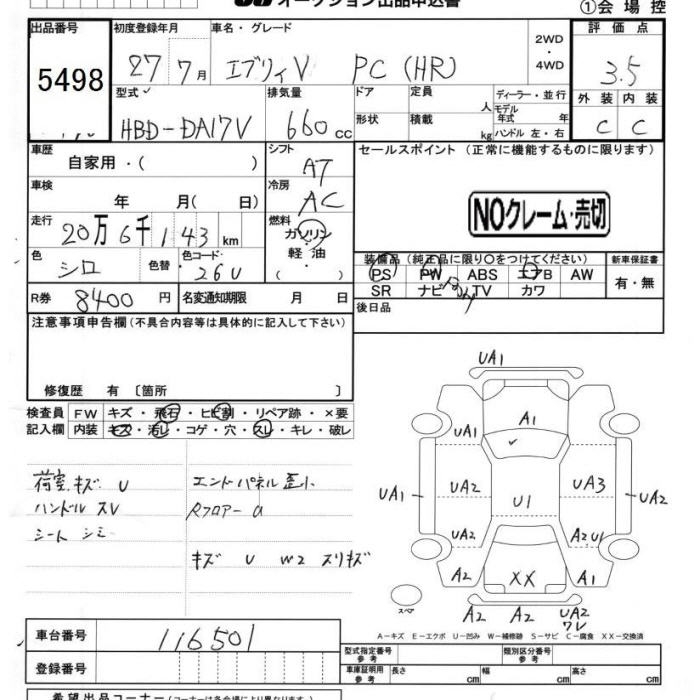 オークション出品申込書
①会場控
出品番号
初度登録年月
車名・グレード
評価点
5498
27 7月
エブリィV PC (HR)
2WD
・
4WD
3.5
型式
排気量
ドア
定員
人
ディーラー・並行
外装
内装
HBD-DA17V
660cc
形状
積載
kg
モデル年式
年
ハンドル 左・右
C
C
車歴
自家用・( )
シフト
AT
セールスポイント (正常に機能するものに限ります)
車検
年 月( 日)
冷房
AC
NOクレーム・売切
走行
20万6千143km
燃料
ガソリン
軽油
( ・ )
色
シロ
色替
色コード
26U
装備品 (純正品に限り○をつけてください)
新車保証書
PS PW ABS エアB AW
SR ナビ TV カワ
有・無
R券
8400円
名変通知期限
月 日
後日品
注意事項申告欄(不具合内容等は具体的に記入して下さい)
修復歴 有 〔箇所 〕
検査員
記入欄
FW
キズ・飛石・ヒビ割・リペア跡・×要
内装
キズ・汚レ・コゲ・穴・スレ・キレ・破レ
荷室キズ U
エンドパネル歪小
ハンドルスレ
Rフロアー a
シート シミ
キズ U W2 スリキズ
UA1
A1
UA1
UA1
UA2
U1
UA3
UA2
UA2
A2 U1
A2
XX
A1
スペア
A2
A2
UA2
ワレ
A-キズ E-エクボ U-凹み W-補修跡 S-サビ C-腐食 XX-交換済
車台番号
116501
型式指定番号
参考
類別区分番号
参考
登録番号
車庫証明用
参考
長さ
cm
幅
cm
高さ
cm
希望出品コーナー(コーナーは各会場により異なります)